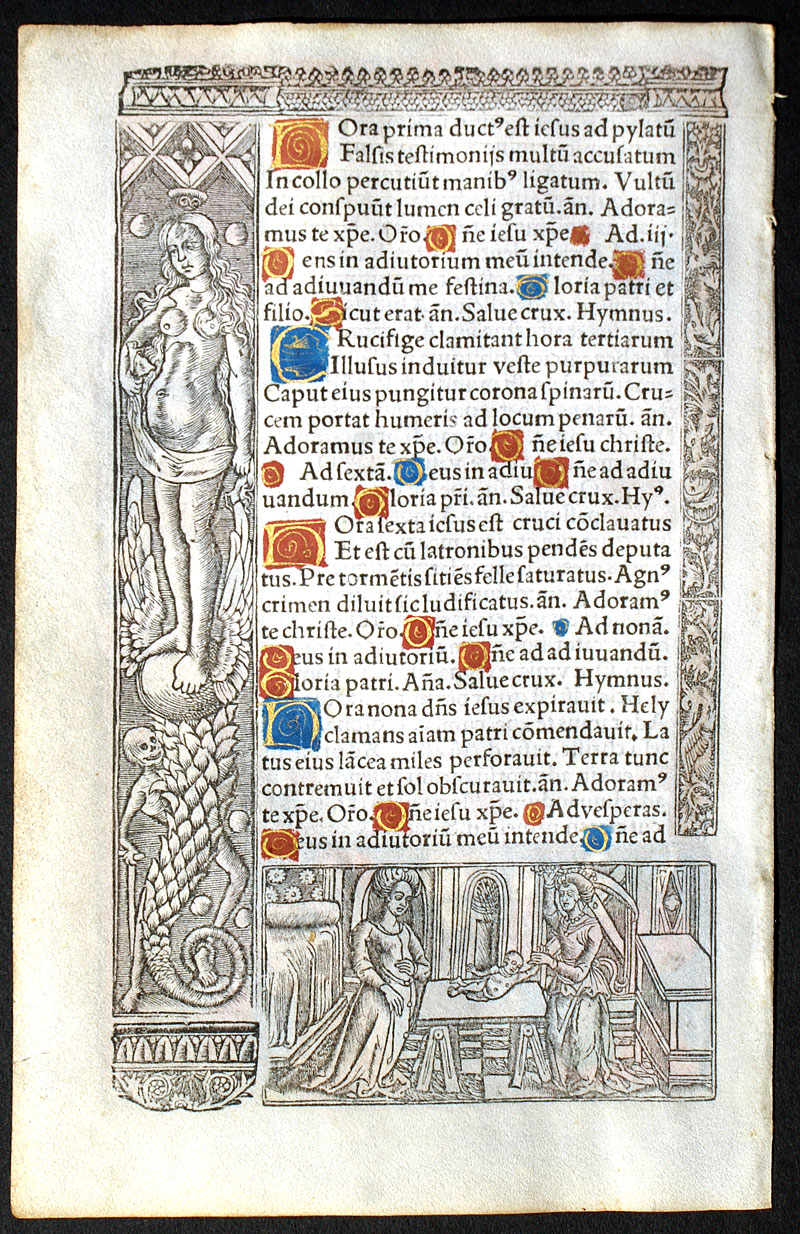 HOra prima duct⁹ est iesus ad pylatū
Falsis testimonijs multū accusatum
In collo percutiūt manib⁹ ligatum. Vultū
dei conspuūt lumen celi gratū. añ. Adora=
mus te xp̄e. Or̄o. Dñe iesu xp̄e Ad. iij.
Dens in adiutorium meū intende. Dñe
ad adiuuandū me festina. Gloria patri et
filio. Sicut erat. añ. Salue crux. Hymnus.
CRucifige clamitant hora tertiarum
Illusus induitur veste purpurarum
Caput eius pungitur corona spinarū. Cru=
cem portat humeris ad locum penarū. añ.
Adoramus te xp̄e. Or̄o. Dñe iesu christe.
Ad sextā. Deus in adiu Dñe ad adiu
uandum. Gloria pr̄i. añ. Salue crux. Hy⁹.
HOra sexta iesus est cruci cōclauatus
Et est cū latronibus pendēs deputa
tus. Pre tormētis sitiēs felle saturatus. Agn⁹
crimen diluit sic ludificatus. añ. Adoram⁹
te christe. Or̄o. Dñe iesu xp̄e. Ad nonā.
Deus in adiutoriū. Dñe ad adiuuandū.
Gloria patri. Aña. Salue crux. Hymnus.
HOra nona dn̄s iesus expirauit. Hely
clamans aīam patri cōmendauit. La
tus eius lācea miles perforauit. Terra tunc
contremuit et sol obscurauit. añ. Adoram⁹
te xp̄e. Or̄o. Dñe iesu xp̄e. Ad vesperas.
Deus in adiutoriū meū intende. Dñe ad